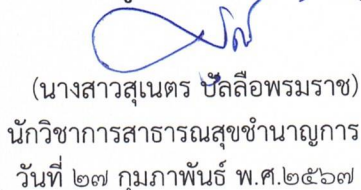 (นางสาวสุเนตร ปัลลือพรมราช)
นักวิชาการสาธารณสุขชำนาญการ
วันที่ ๒๗ กุมภาพันธ์ พ.ศ.๒๕๖๗